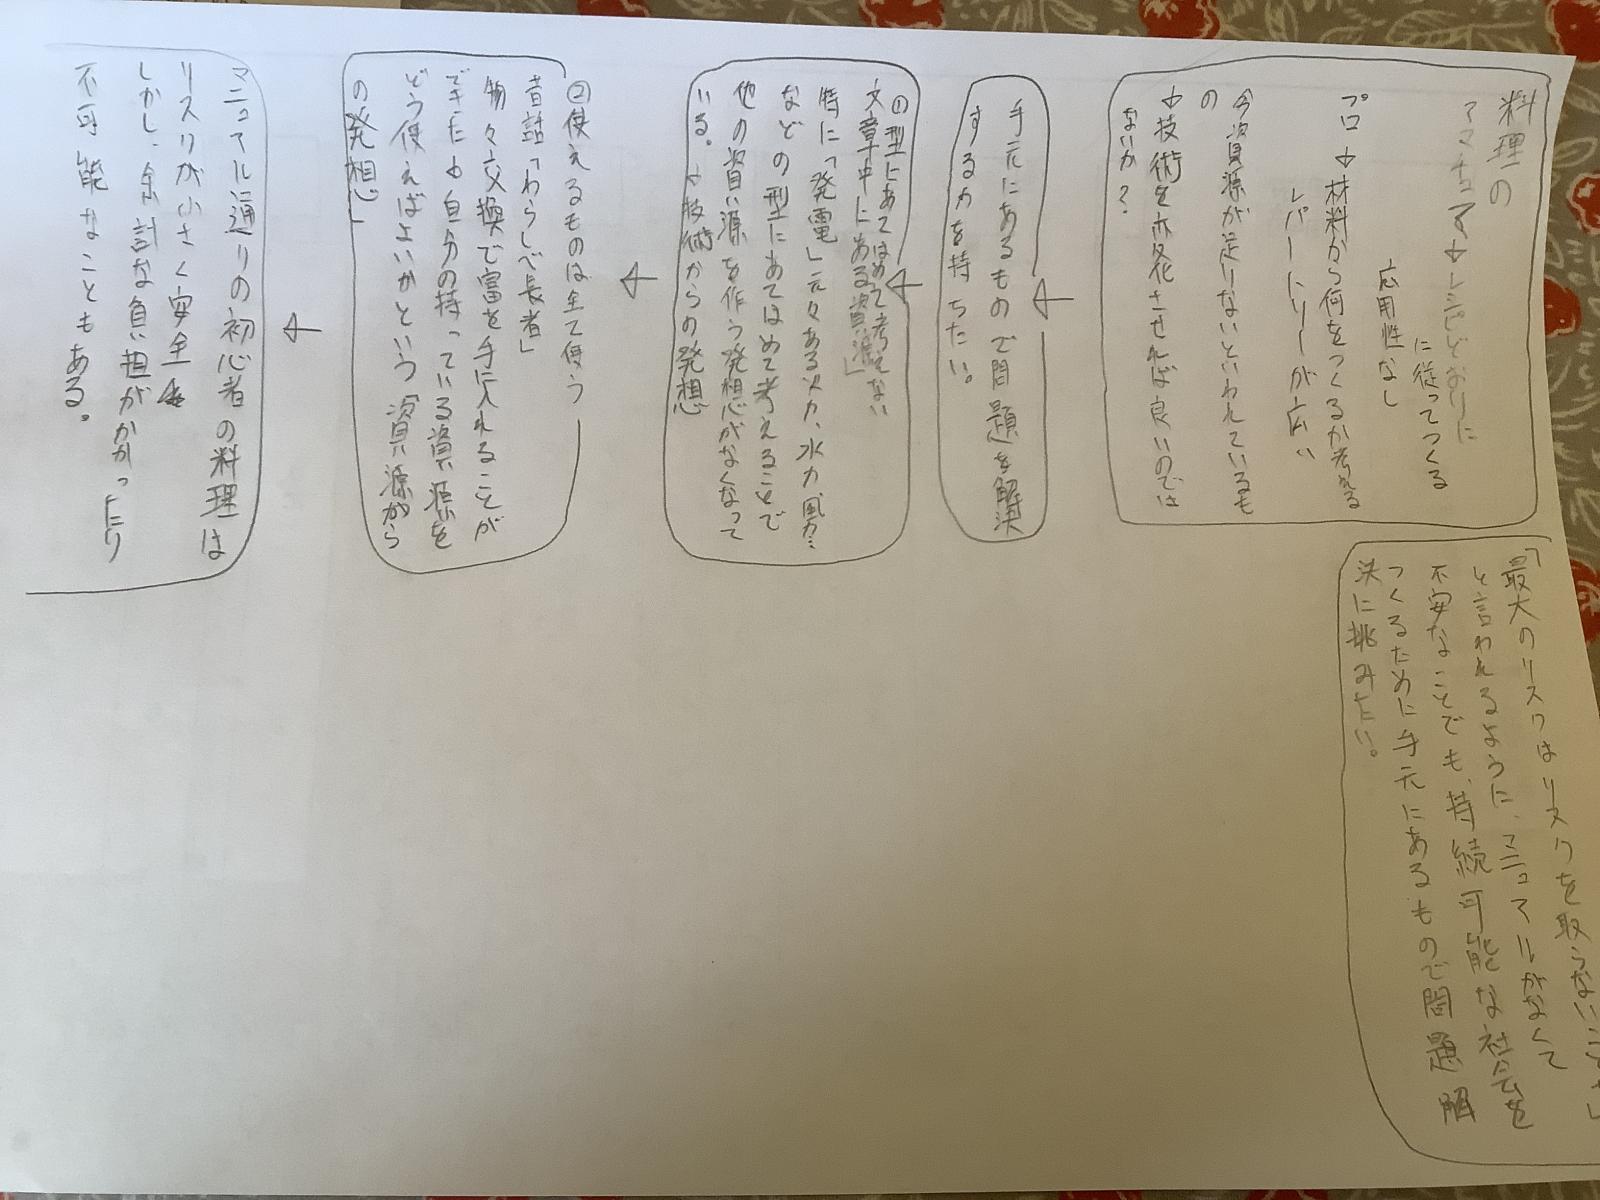 料理の
アマチュア→レシピどおりに
に従ってつくる
応用性なし
プロ→材料から何をつくるか考える
レパートリーが広い
今資源が足りないといわれているも
の
→技術を変化させれば良いのでは
ないか?
手元にあるもので問題を解決
する力を持ちたい。
の型にあてはめて考えない
文章中にある資源」
特に「発電」元々ある火力、水力風力…
などの型にあてはめて考えることで
他の資源を作る発想がなくなって
いる。→技術からの発想
②使えるものは全て使う
昔話「わらしべ長者」
物々交換で富を手に入れることが
できた→自分の持っている資源を
どう使えばよいかという「資源から
の発想」
マニュアル通りの初心者の料理は
リスクが小さく安全
しかし、余計な負い担がかかったり
不可能なこともある。
「最大のリスクはリスクを取らないこと」
と言われるように、マニュアルがなくて
不安なことでも、持続可能な社会を
つくるために手元にあるもので問題解
決に挑みたい。